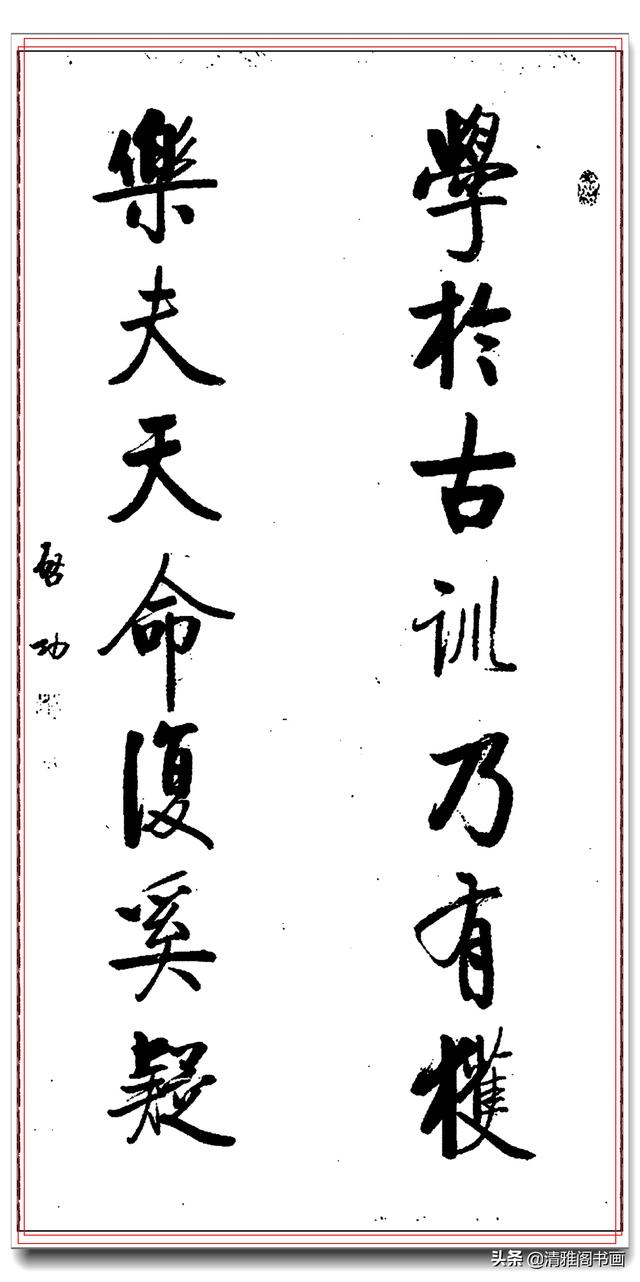 學於古訓乃有獲
樂夫天命復奚疑
啓功
头条 @清雅阁书画